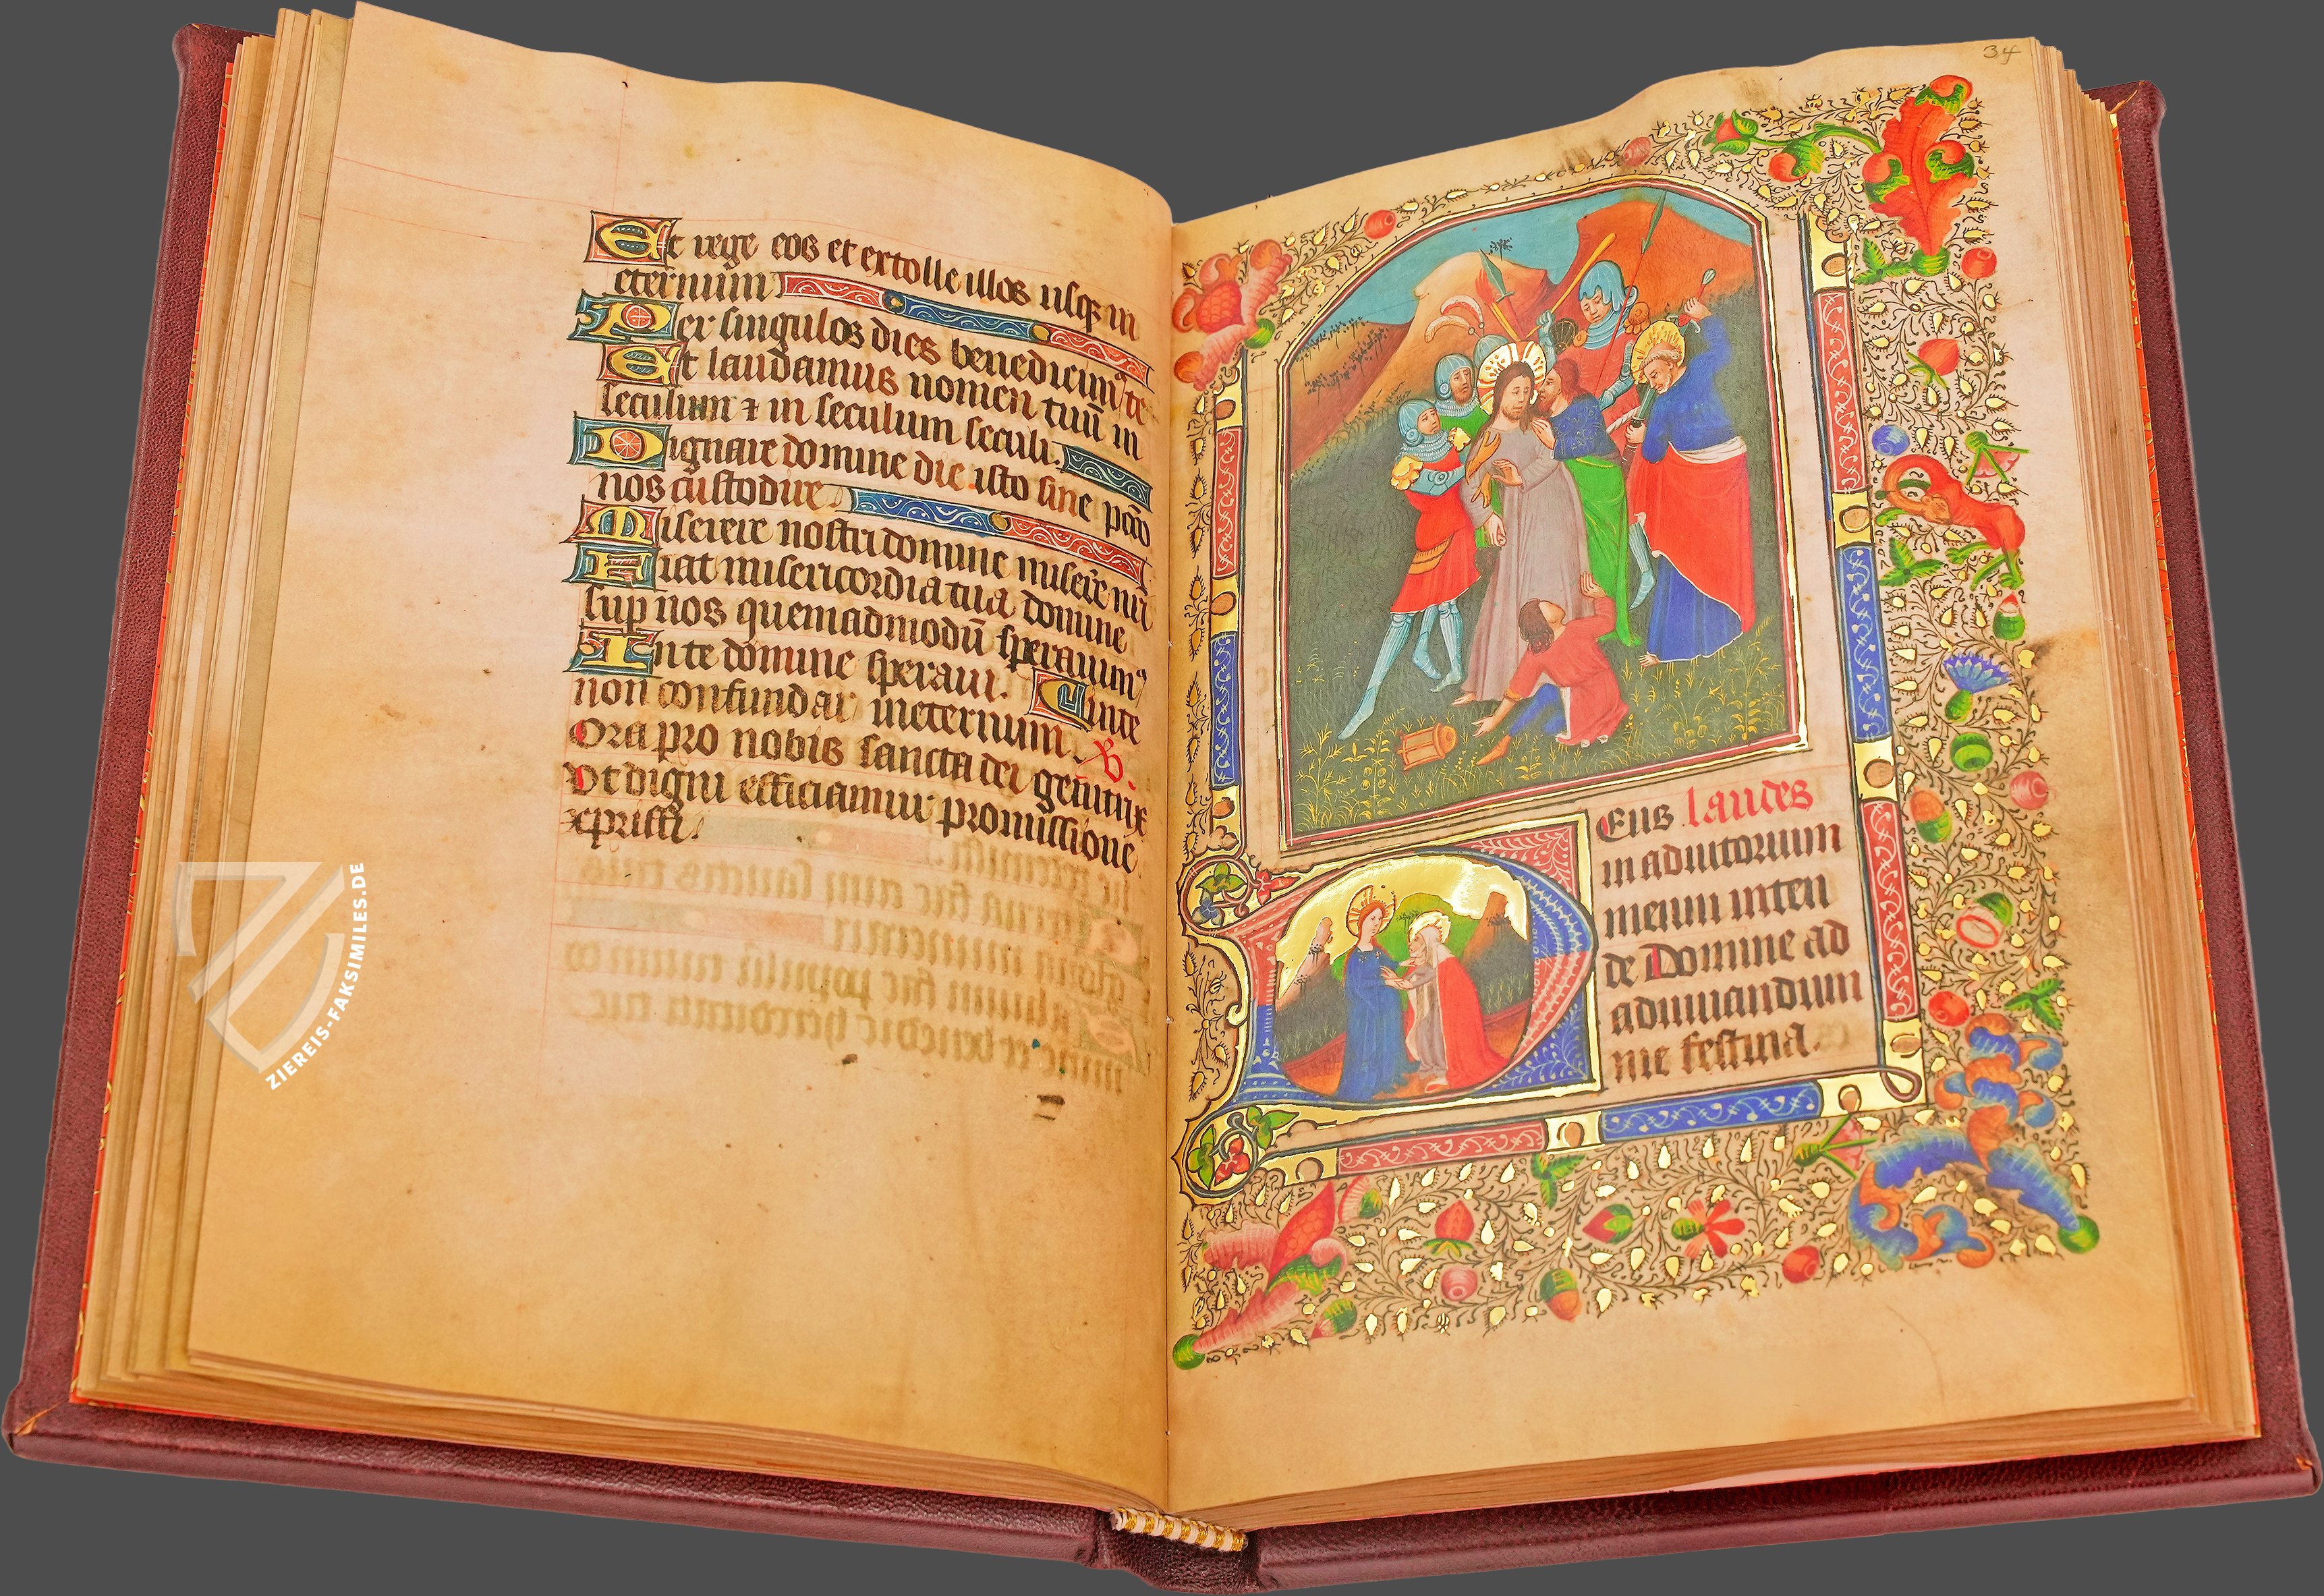 Et rege eos et extolle illos usq in
eternum
Per singulos dies benedicim te
Et laudamus nomen tuu in
seculum ⁊ in seculum seculi.
Dignare domine die isto sine pcco
nos custodire
Miserere nostri domine misere nri
Fiat misericordia tua domine
sup nos quemadmodu speravim
In te domine speravi.
non confundar ineternum.
Ora pro nobis sancta dei genitrix
Ut digni efficiamur promissione
xpristi.
34
Deus laudes
in adiutorium
meum inten
de Domine ad
adiuuandum
me festina.
ZIEREIS-FAKSIMILES.DE